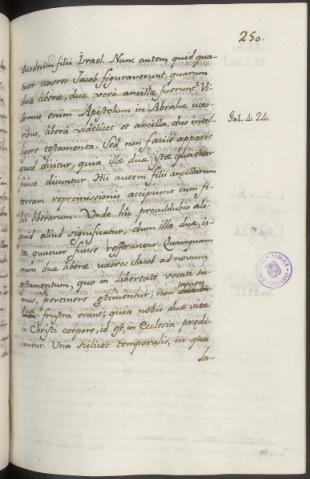 250.
duodecim filii Israel. Nunc autem quid qua-
tuor uxores Jacob figuraverunt, quarum
duæ liberæ, duæ verò ancillæ fuerunt? Vi-
demus enim Apostolum in Abrahæ uxo-
ribus, liberâ videlicet et ancillâ, duo intel-
ligere testamenta. Sed non facilè apparet
quod dicitur, quia illæ duæ istæ quatuor
fuisse dicuntur. Hii autem filii ancillarum
terram repromissionis accipiunt cum fi-
liis liberarum. Unde hic proculdubio ali-
quid aliud significatur, dum illæ duæ, is-
tæ quatuor fuisse referantur. Quamquam
enim duæ liberæ uxores Jacob ad novum
testamentum, quo in libertate vocati su-
mus, pertinere existimentur, non tamen
frustra erant; quia nobis duæ vitæ
in Christi corpore, id est, in Ecclesia prædi-
cantur. Una scilicet temporalis, in qua
la-
Gal. 4. 24.